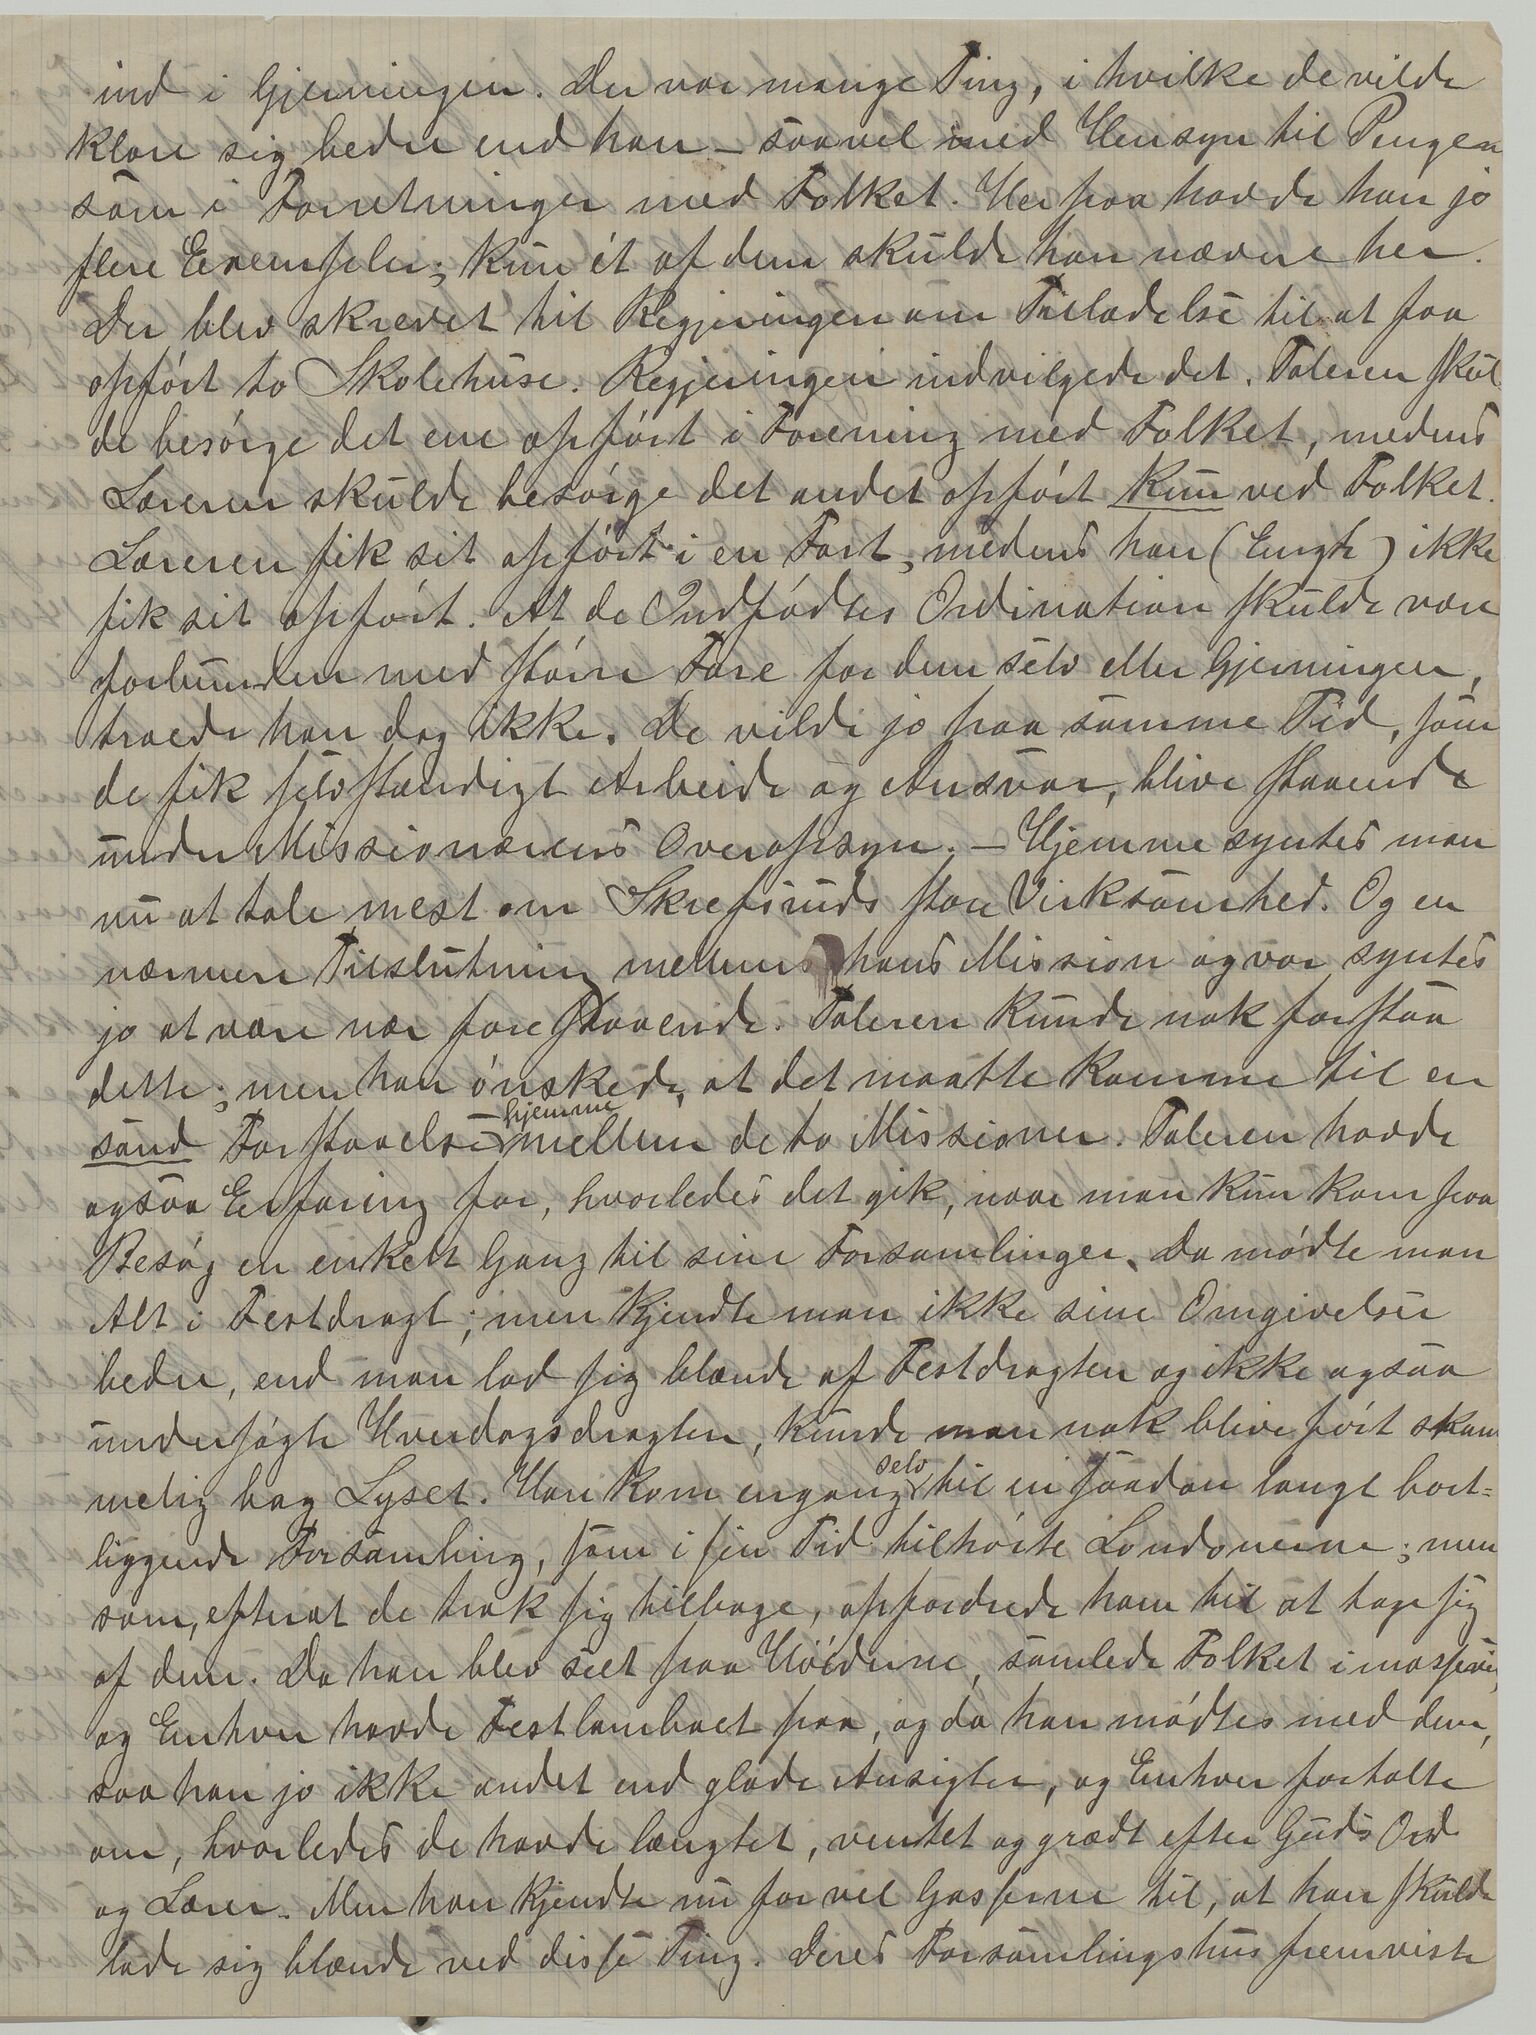 ind i Gjerningen. Der var mange Ting, i hvilke de vilde
klare sig bedre end han – saavel med Hensyn til Pengen
som i Forretninger med Folket. Herpaa havde han jo
flere Exempler; kun ét af dem skulde han nævne her.
Der blev skrevet til Regjeringen om Tilladelse til at faa
opført to Skolehuse. Regjeringen indvilgede det. Taleren skul
de besørge det ene opført i Forening med Folket, medens
Læreren skulde besørge det andet opført kun ved Folket.
Læreren fik sit opført i en Fart, medens han (Engh) ikke
fik sit opført. At de Indfødtes Ordination skulde være
forbunden med større Fare for dem selv eller Gjerningen,
troede han dog ikke. De vilde jo paa samme Tid, som
de fik selvstændigt Arbeide og Ansvar, blive staaende
under Missionærens Overopsyn. – Hjemme syntes man
nu at tale mest om Skrefsruds store Virksomhed. Og en
nærmere Tilslutning mellem hans Mission og vor syntes
jo at være nær forestaaende. Taleren kunde nok forstaa
dette; men han ønskede, at det maatte komme til en
sand Forstaaelse hjemme mellem de to Missioner. Taleren havde
ogsaa Erfaring for, hvorledes det gik, naar man kun kom paa
Besøg en enkelt Gang til sine Forsamlinger. Da mødte man
Alt i Festdragt; men kjendte man ikke sine Omgivelser
bedre, end man lod sig blænde af Festdragten og ikke ogsaa
undersøgte Hverdagsdragten, kunde man nok blive ført skam
melig bag Lyset. Han kom engang selv til en saadan langt bort=
liggende Forsamling, som i sin Tid tilhørte Londonerne; men
som, efterat de trak sig tilbage, opfordrede ham til at tage sig
af dem. Da han blev seet paa Høiderne, samlede Folket i massevis,
og Enhver havde Festlambaet paa, og da han mødtes med dem,
saa han jo ikke andet end glade Ansigter, og Enhver fortalte
om, hvorledes de havde længtet, ventet og grædt efter Guds Ord
og Lærer. Men han kjendte nu for vel Gasserne til, at han skulde
lade sig blænde ved disse Ting. Deres Forsamlingshus fremviste